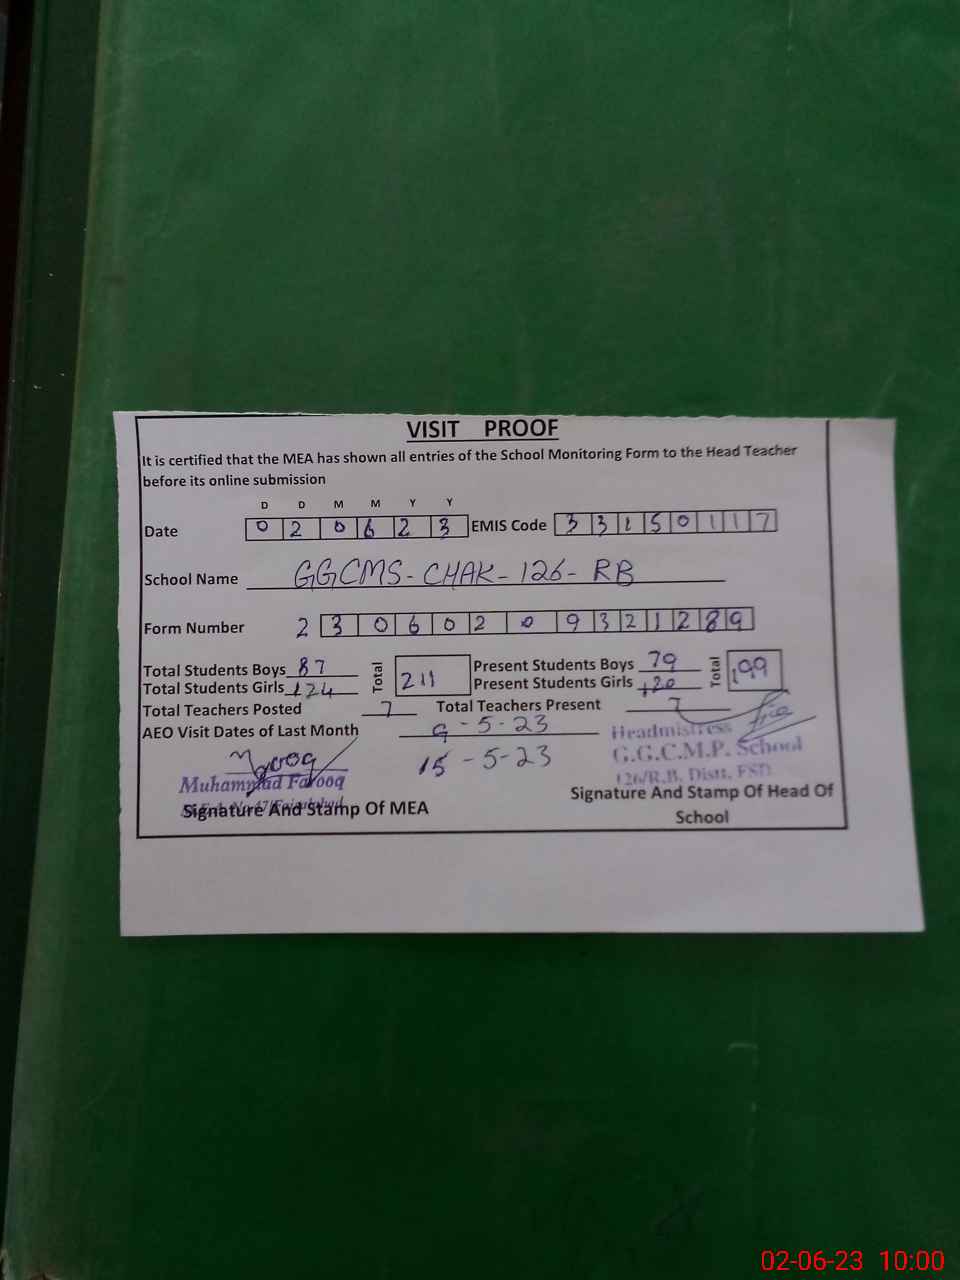 VISIT PROOF
It is certified that the MEA has shown all entries of the School Monitoring Form to the Head Teacher
before its online submission
D D M M Y Y
Date 0 2 0 6 2 3 EMIS Code 3 3 1 5 0 1 1 7
School Name GGCMS-CHAK-126-RB
Form Number 2 3 0 6 0 2 0 9 3 2 1 2 8 9
Total Students Boys 87 Total 211 Present Students Boys 79 Total 199
Total Students Girls 124 Present Students Girls 120
Total Teachers Posted 7 Total Teachers Present 7
AEO Visit Dates of Last Month 9-5-23
15-5-23
Headmistress
G.G.C.M.P. School
126/R.B. Distt. FSD
Muhammad Farooq
Signature And Stamp Of MEA
Signature And Stamp Of Head Of
School
02-06-23 10:00